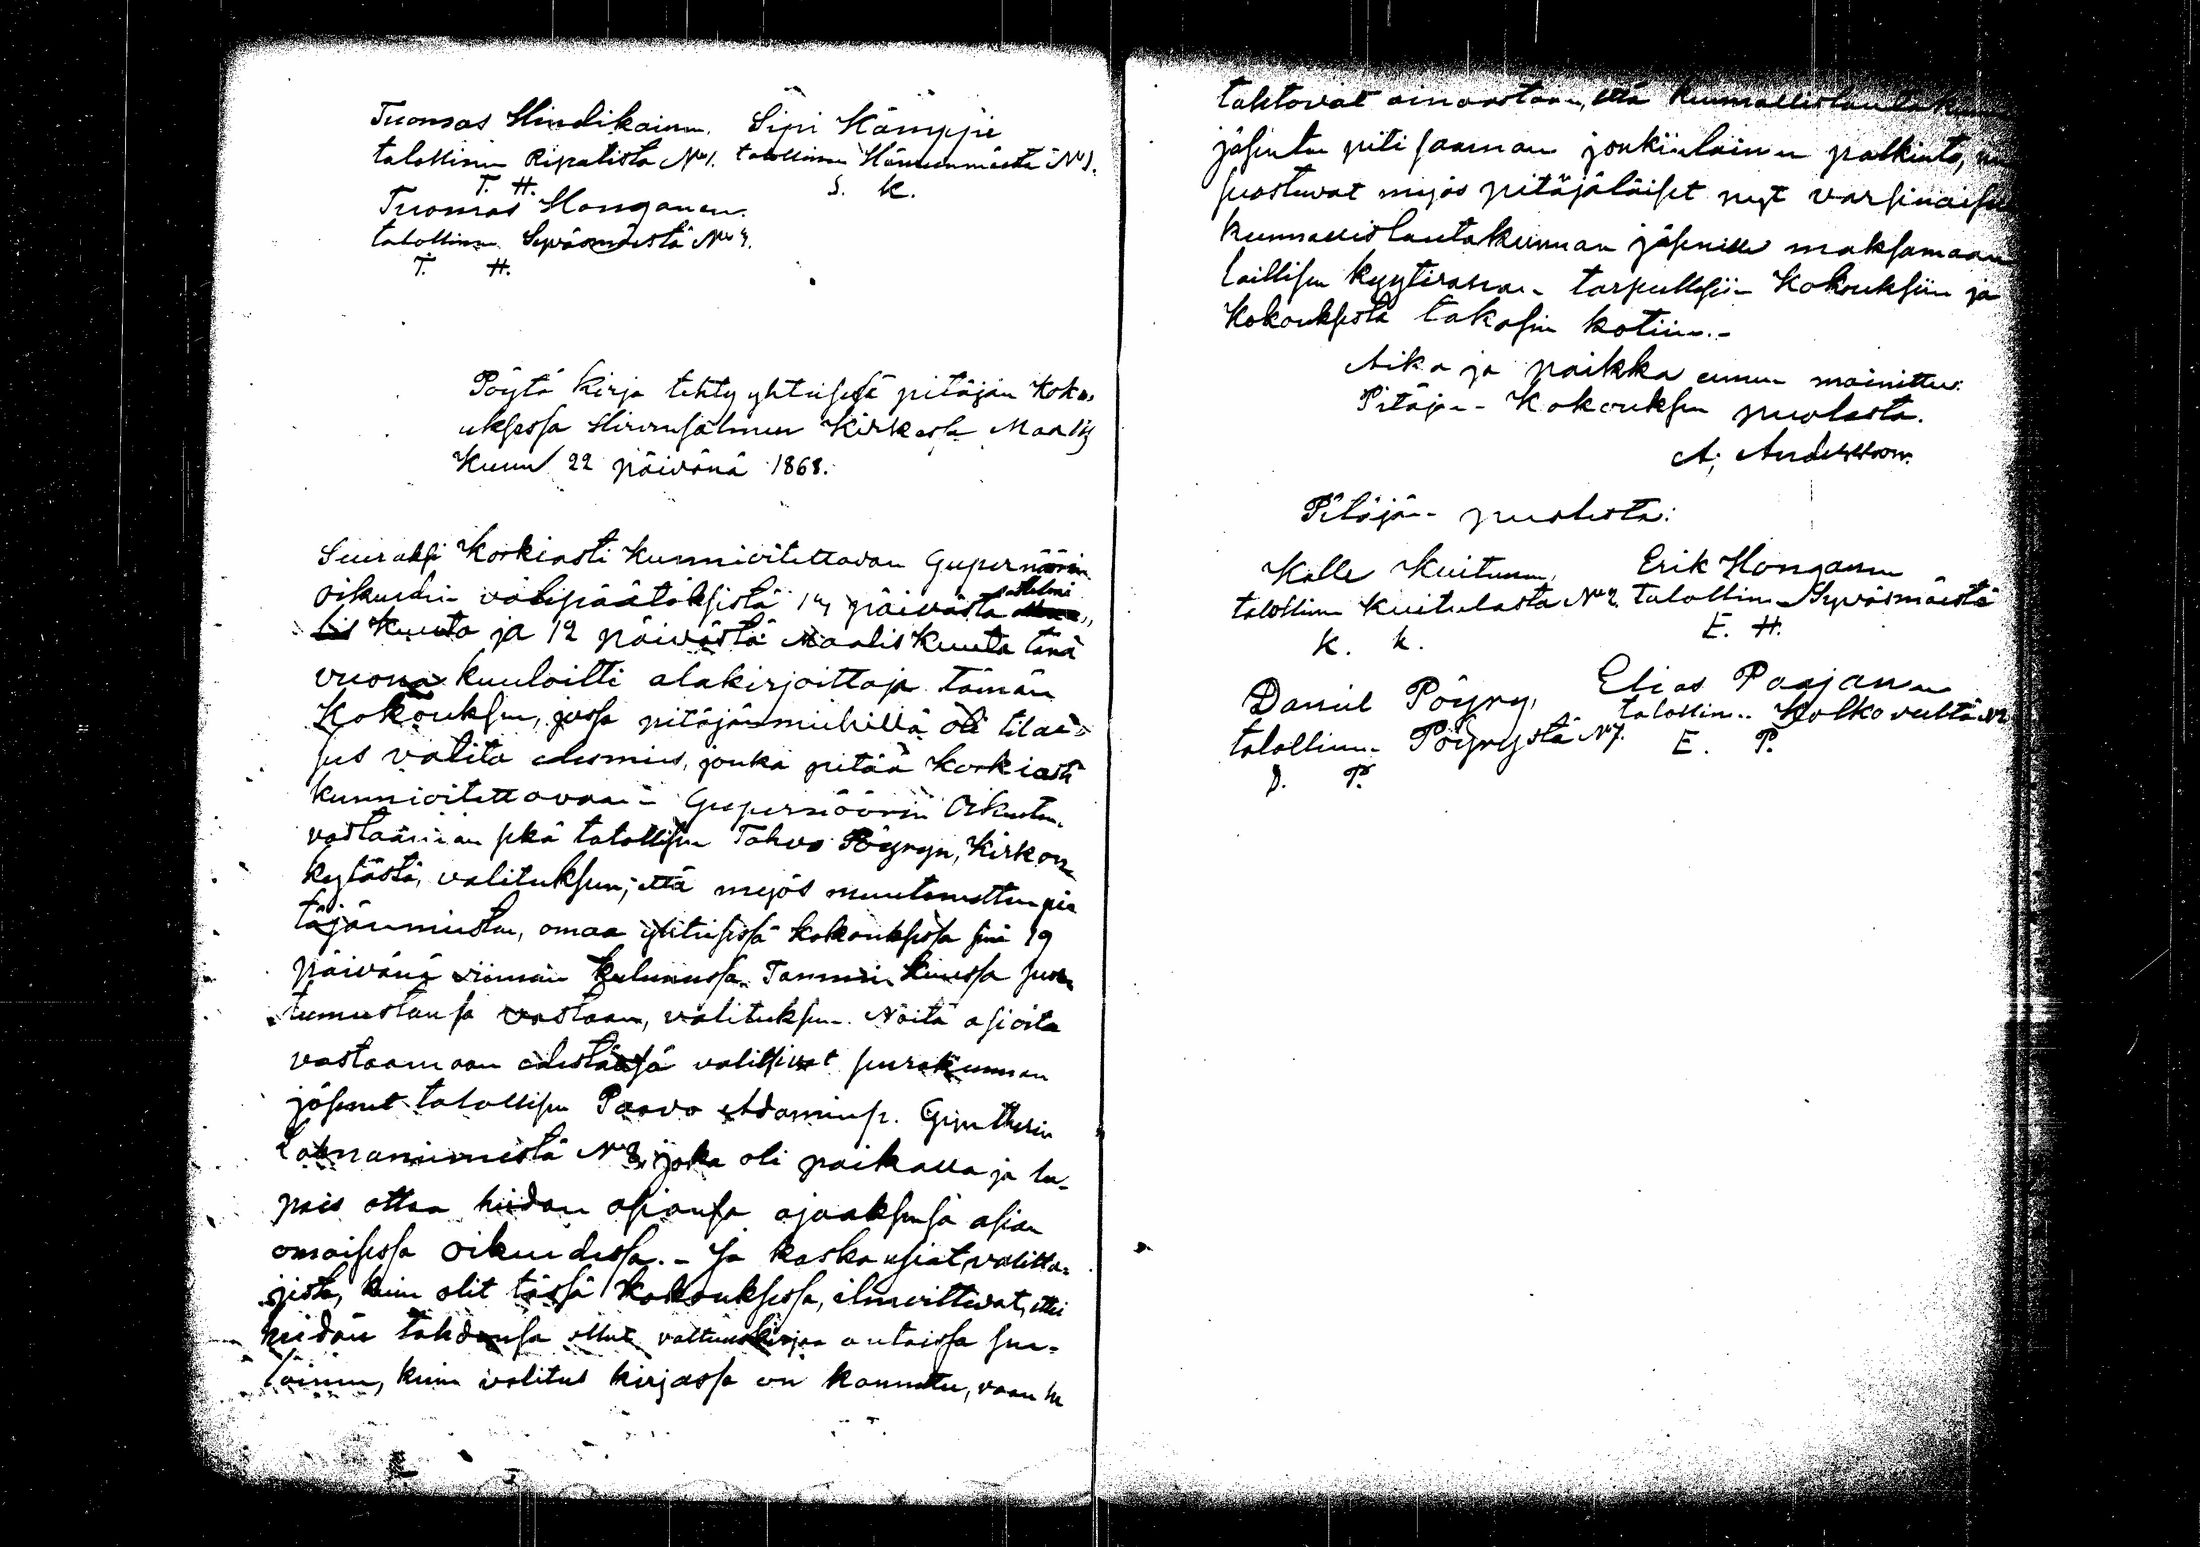 Tuomas Hindikainen. Sipi Kämppi
talollinen Ripatista No 1. talollinen Hännenmäestä No 1.
T. H. S. K.
Tuomas Honganen.
talollinen Syväsmäestä No 4.
T. H.
Pöytä kirja tehty yhteisessä pitäjän Koko-
uksessa Hirvensalmen Kirkossa Maalis
Kuun 22 päivänä 1868.
Seuraksi Korkiasti Kunnioitettavan Gupernöörin
oikeuden välipäätöksistä 14 päivästä
Kuuta ja 12 päivästä Maalis Kuuta tänä
vuona kuuloitti alakirjoittaja tämän
Kokouksen, jossa pitäjänmiehillä oli tilai-
sus valita edesmies, jonka pitää korkiasti
kunnioitettavaan Gupernöörin Oikeuten
vastaaman sekä talollisen Tahvo Pöyryn, Kirkon
kylästä, valituksen, että myös muutamitten pi-
täjänmiesten, omaa yhteisessä kokouksessa sinä 19
päivänä viiman kuluneessa Tammi kuussa suos-
tumustansa vastaan, valituksen. Näitä asioita
vastaamaan edestänsä valitsivat seurakunnan
jäsenet talollisen Paavo Adaminp. Gyntherin
Lahnaniemestä No 2, joka oli paikalla ja lu-
pais ottaa heidän asiansa ajaaksensa asian
omaisessa oikeudessa. - Ja koska usiat valitta-
jista, kuin olit tässä kokouksessa, ilmoittivat, ettei
heidän tahdonsa ollut valtuuskirjaa antaissa sen-
läinen, kuin valitus kirjassa on kannettu, vaan he
tahtovat ainoastaan, että kunnallislautakunnan
jäsenten piti saaman jonkinlainen palkinto, niin
suostuvat myös pitäjäläiset nyt varsinaisen
kunnallislautakunnan jäsenille maksamaan
laillisen kyytirahan tarpeellisiin Kokouksiin ja
Kokouksesta takasin kotiin. -
Aika ja paikka ennen mainittu:
Pitäjän Kokouksen puolesta.
A. Andersson.
Pitäjän puolesta:
Kalle Kuitunen, Erik Honganen
talollinen Kuitulasta No 2. talollinen Syväsmäestä
K. K. E. H.
Daniel Pöyry, Elias Paajanen
talollinen Pöyrystä No 7. talollinen Kolkoveeltä No 2
D. P. E. P.